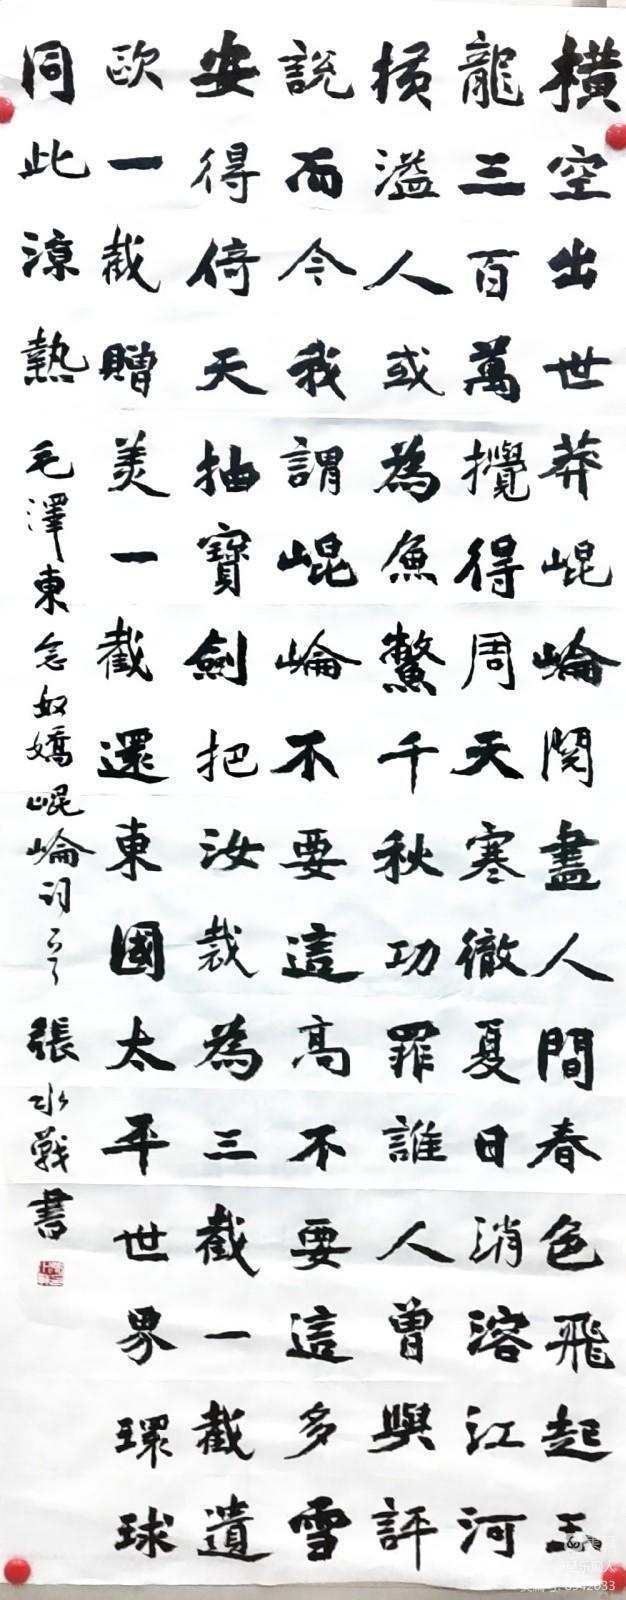 橫空出世莽崐崘閱盡人間春色飛起玉
龍三百萬攪得周天寒徹夏日消溶江河
橫溢人或為魚鱉千秋功罪誰人曾與評
說而今我謂崐崘不要這高不要這多雪
安得倚天抽寶劍把汝裁為三截一截遺
歐一截贈美一截還東國太平世界環球
同此涼熱
毛澤東念奴嬌崐崘詞 張水戰書